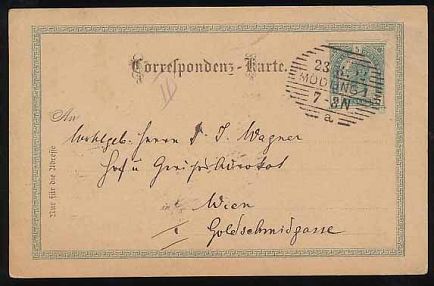 Correspondenz-Karte.
23
MÖDLING 1
7-8N
a
An
Wohlgeb. Herrn J. Wagner
Hof u Gerichts Advokat
in
Wien
I
Goldschmidgasse
Nur für die Adresse